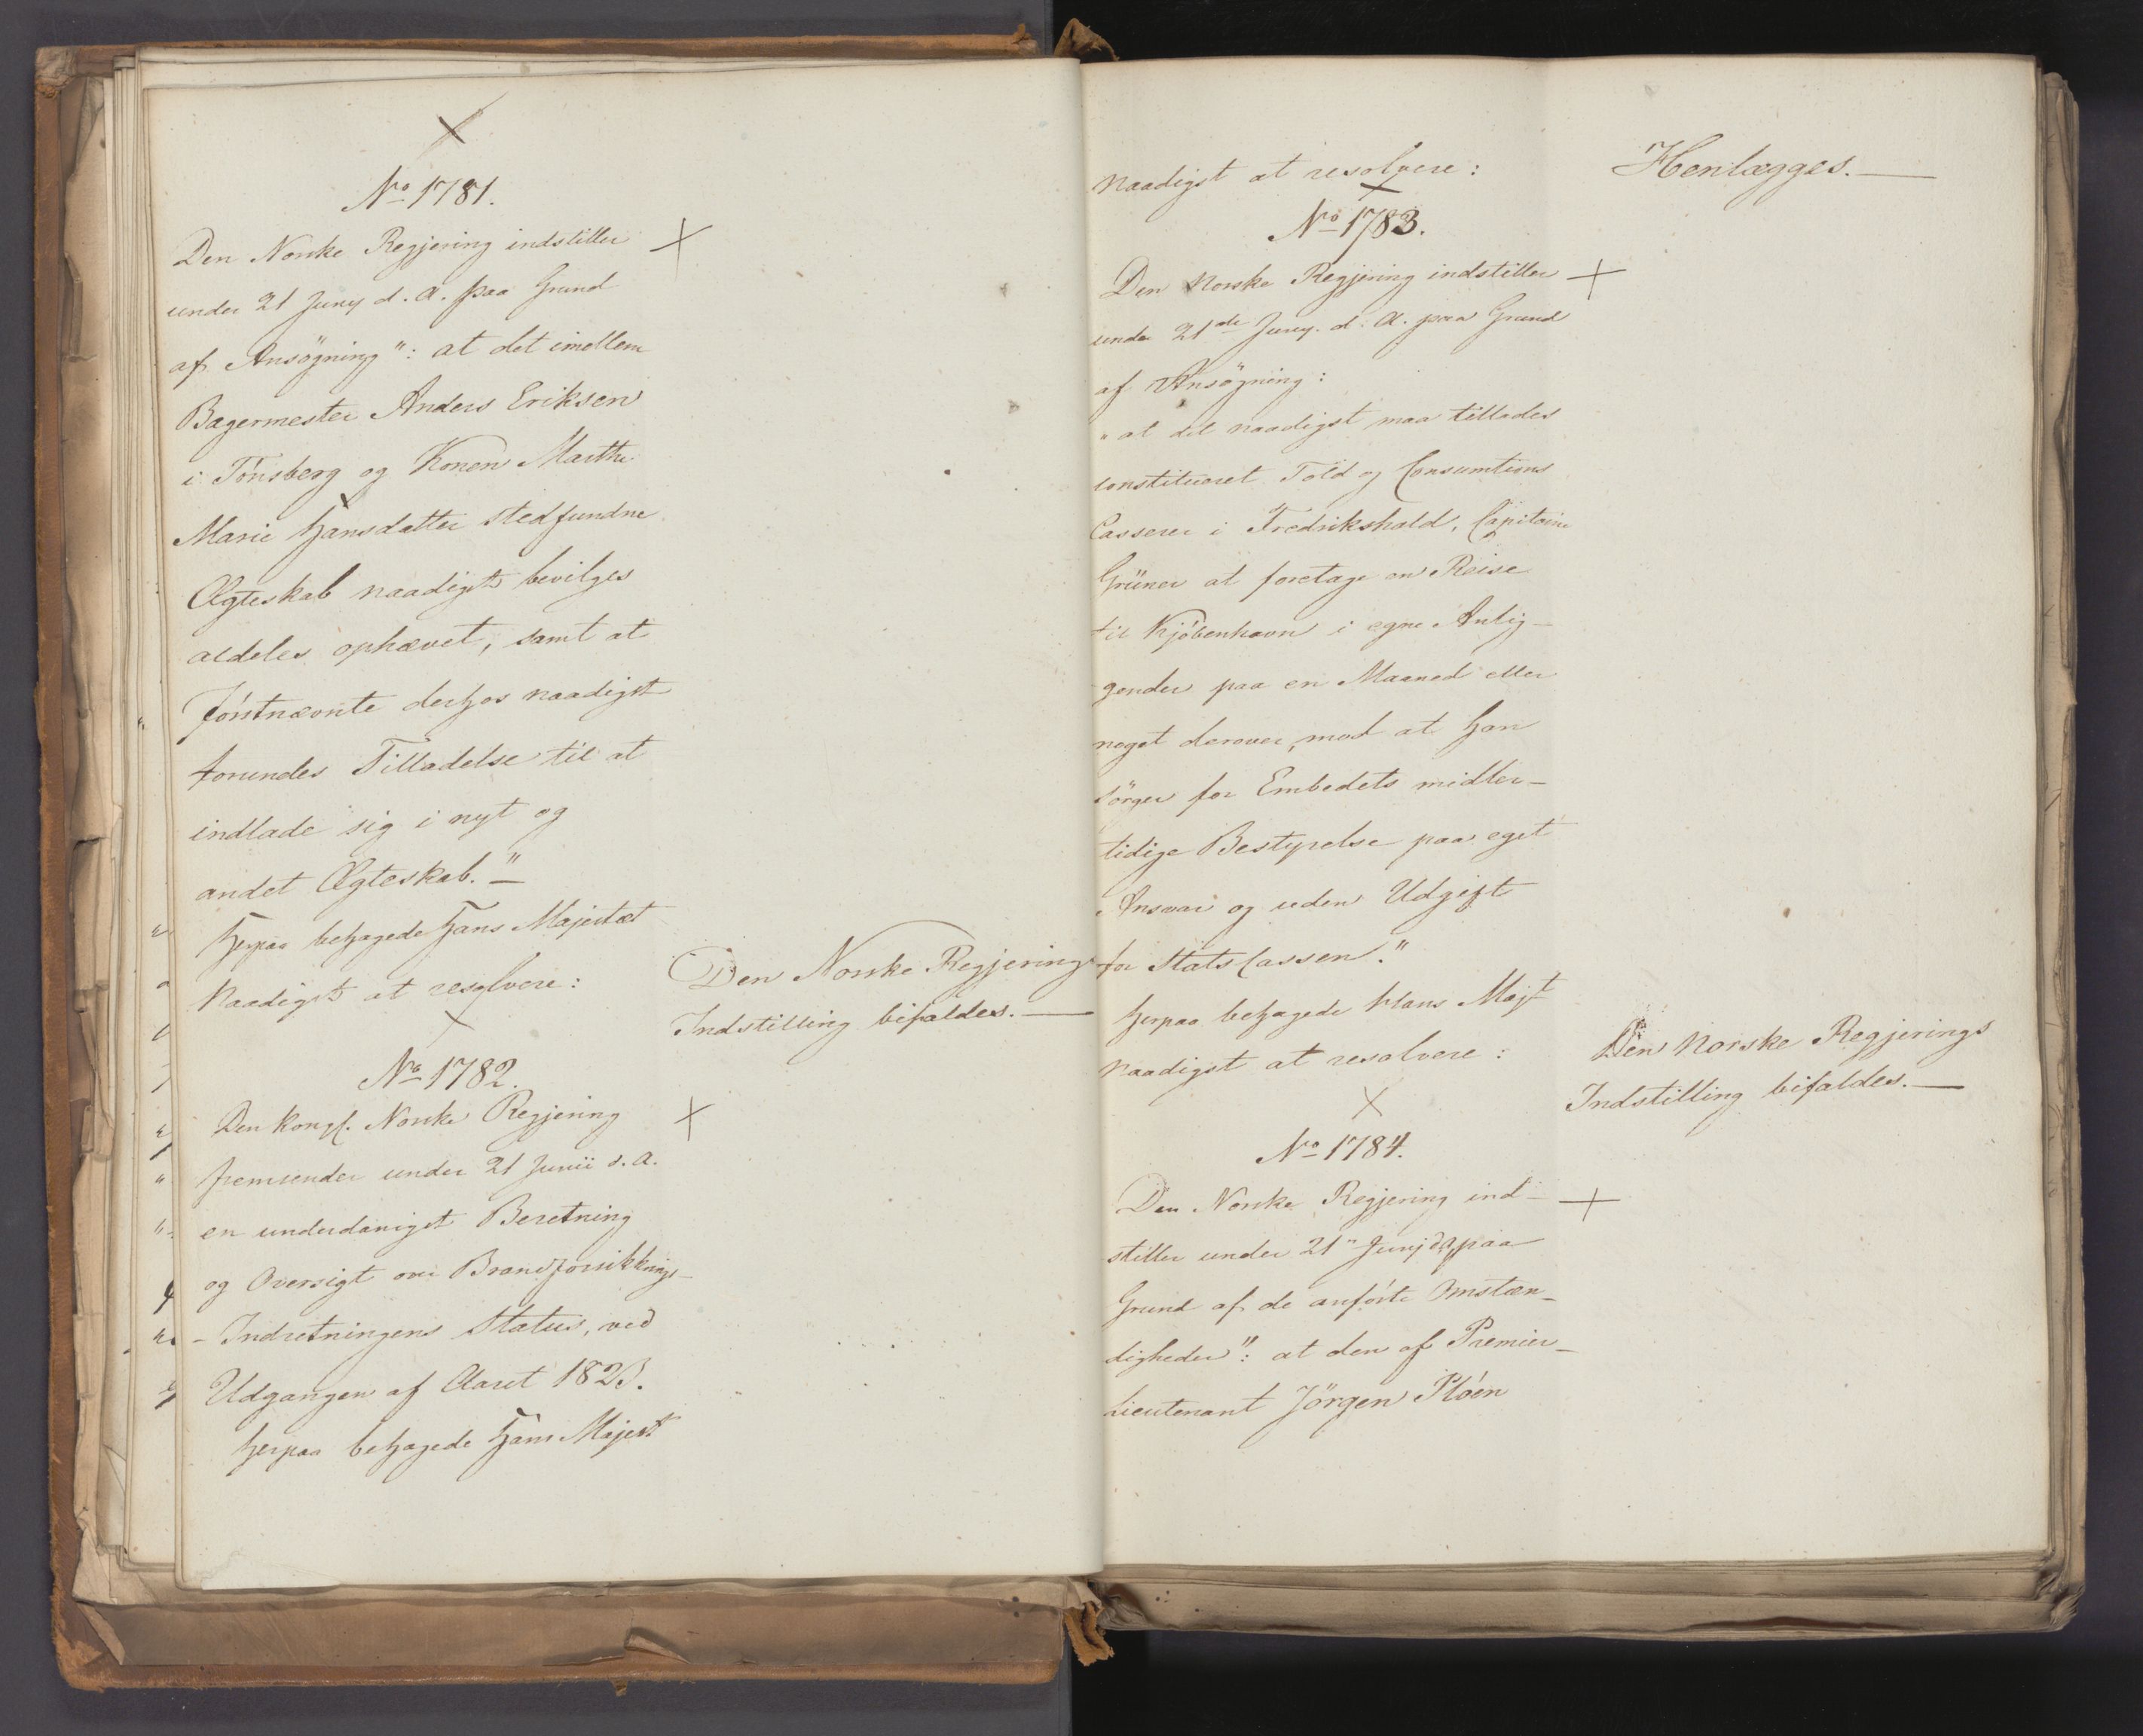 No 1781.
Den Norske Regjering indstiller
under 21 Juny d. A. paa Grund
af Ansögning": at det imellem
Bagermester Anders Eriksen
i Tönsberg og Konen Marthe
Marie Hansdatter stedfundne
Ægteskab naadigst bevilges
aldeles ophævet, samt at
förstnævnte derhos naadigst
forundes Tilladelse til at
indlade sig i nyt og
andet Ægteskab." —
Herpaa behagede Hans Majestæt
Naadigst at resolvere:
Den Norske Regjerings
Indstilling bifaldes. —
No 1782.
Den Kongl. Norske Regjering
fremsender under 21 Junii d. A.
en underdanigst Beretning
og Oversigt over Brandforsikkrings-
- Indretningens Status, ved
Udgangen af Aaret 1823.
Herpaa behagede Hans Majest
naadigst at resolvere:
Henlægges. —
No 1783.
Den Norske Regjering indstiller
under 21de Juny. d. A. paa Grund
af Ansögning:
" at det naadigst maa tillades
constitueret Told og Consumtions
Casserer i Fredrikshald, Capitaine
Grüner at foretage en Reise
til Kjöbenhavn i egne Anlig-
gender paa en Maaned eller
noget derover, mod at han
sörger for Embedets midler-
tidige Bestyrelse paa eget
Ansvar og uden Udgift
for Stats Cassen."
Herpaa behagede Hans Majt
naadigst at resolvere:
Den Norske Regjerings
Indstilling bifaldes. —
No 1784.
Den Norske Regjering ind-
stiller under 21" Junj d. A. paa
Grund af de anförte Omstæn-
digheder": at den af Premier-
Lieutenant Jörgen Plöen